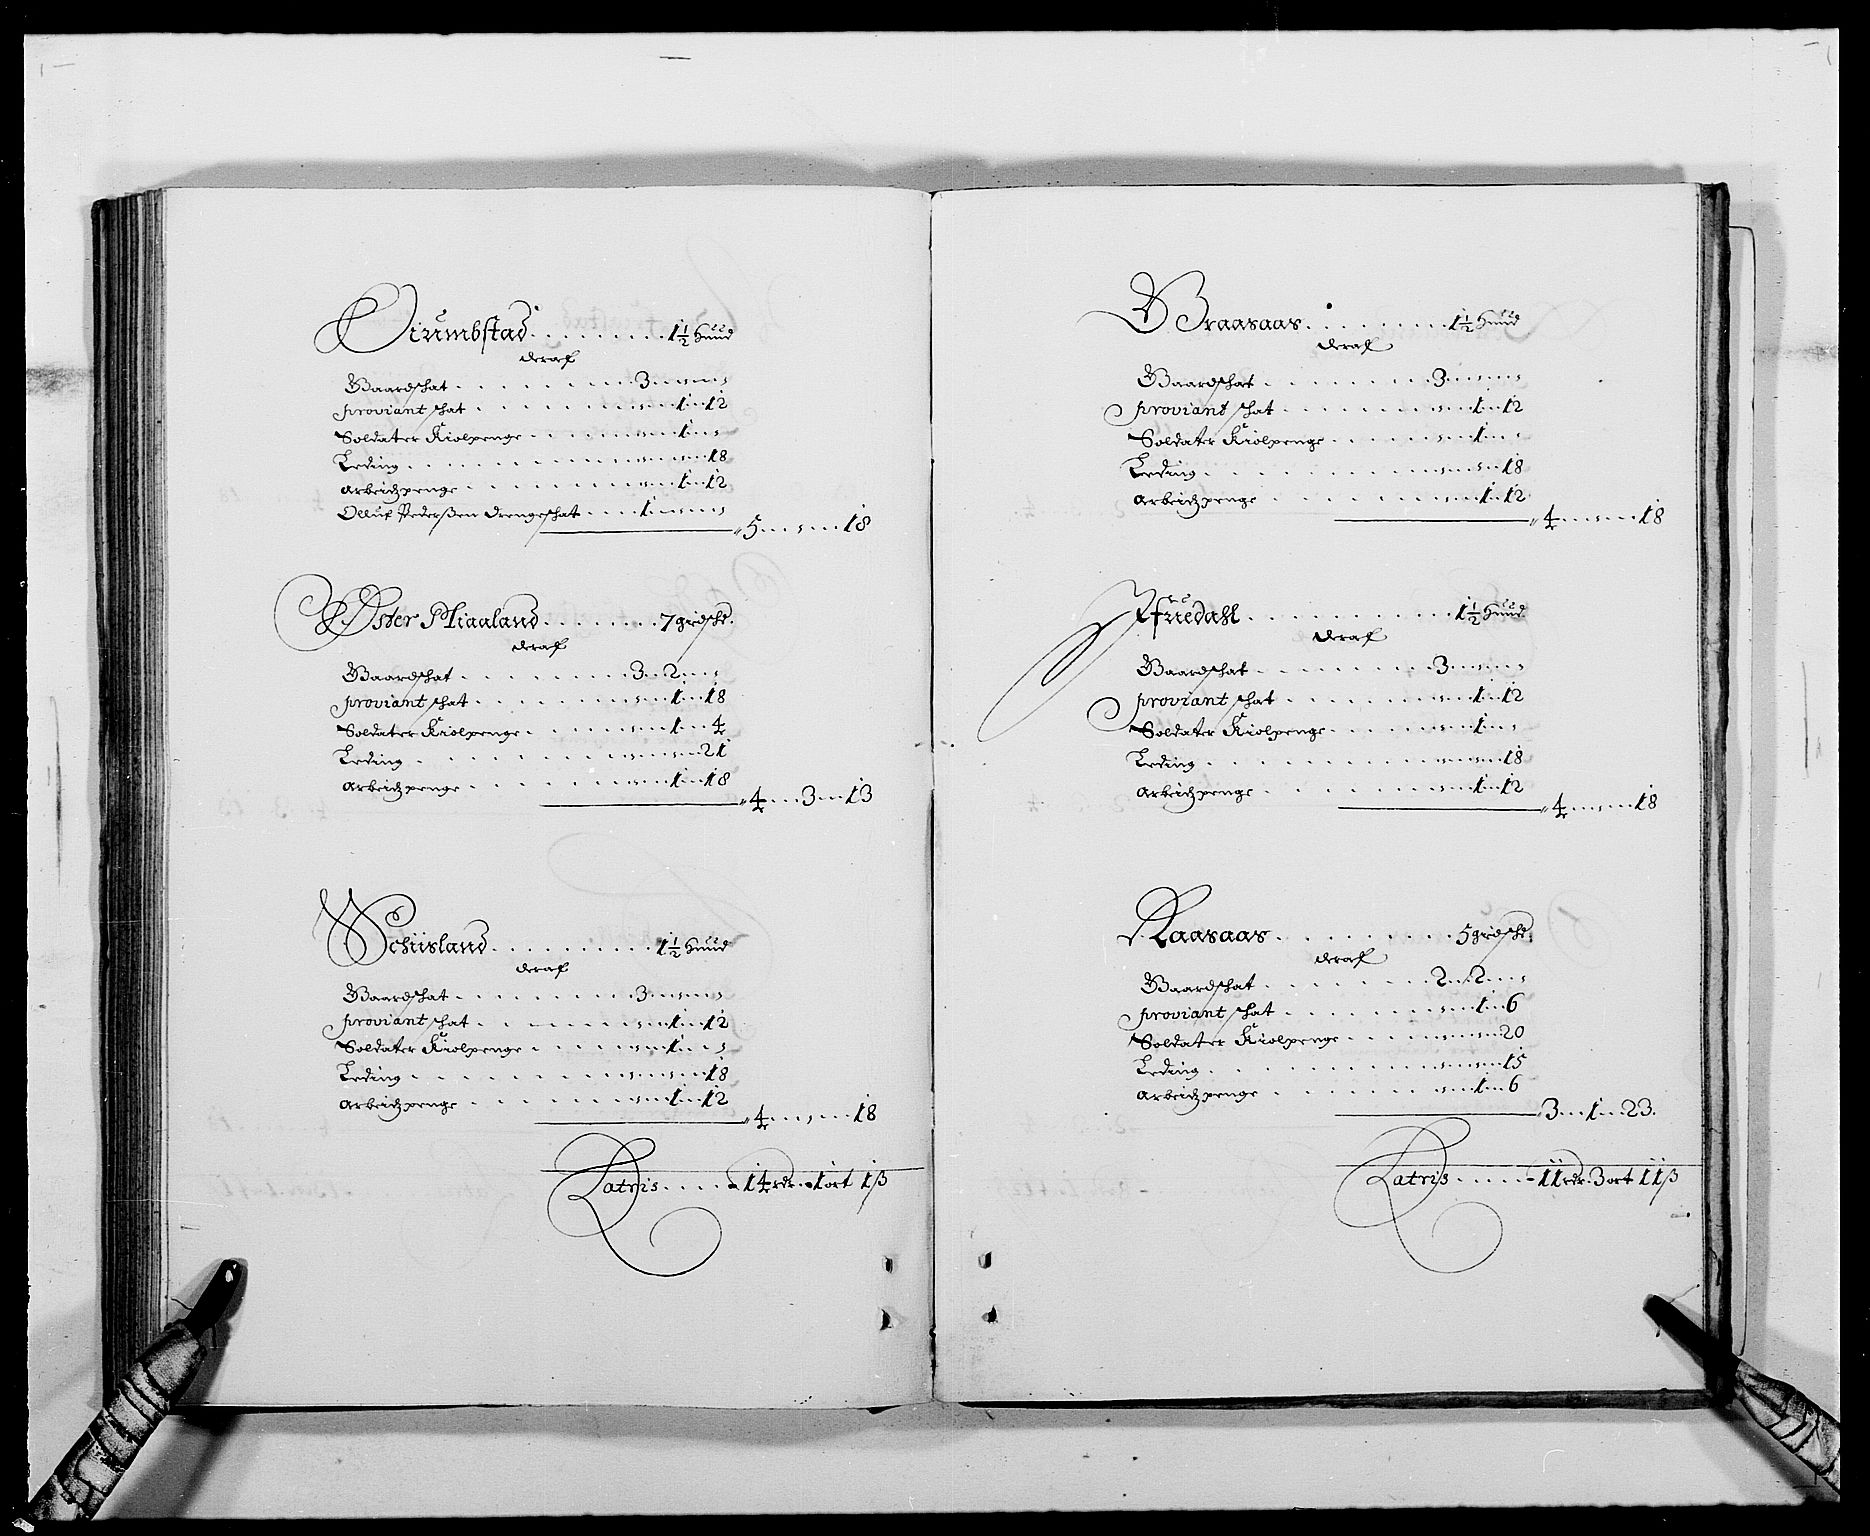 Oiumbstad . . . . . . . . 1½ Huud
deraf
Gaardschat . . . . . . . . 3 „ „
proviant schat . . . . . . . „ 1 „ 12
Soldater Kiolpenge . . . . . . „ 1 „ „
Leding . . . . . . . . . . „ „ 18
arbeidzpenge . . . . . . . . „ 1 „ 12
Olluf Pederßen drengeschat . . . . 1 „ „
5 „ „ 18
Øster Miaaland . . . . . . . 7 gidsche.
deraf
Gaardschat . . . . . . . . 3 „ 2 „
proviant schat . . . . . . . „ 1 „ 18
Soldater Kiolpenge . . . . . . „ 1 „ 4
Leding . . . . . . . . . . „ „ 21
arbeidzpenge . . . . . . . . „ 1 „ 18
4 „ 3 „ 13
Schiisland . . . . . . . . 1½ Huud
deraf
Gaardschat . . . . . . . . 3 „ „
proviant schat . . . . . . . „ 1 „ 12
Soldater Kiolpenge . . . . . . „ 1 „ „
Leding . . . . . . . . . . „ „ 18
arbeidzpenge . . . . . . . . „ 1 „ 12
4 „ „ 18
Latris . . . . 14 rdr. 1 ort 1 ß
Braasaas . . . . . . . . 1½ Huud
deraf
Gaardschat . . . . . . . . 3 „ „
proviant schat . . . . . . . „ 1 „ 12
Soldater Kiolpenge . . . . . . „ 1 „ „
Leding . . . . . . . . . . „ „ 18
arbeidzpenge . . . . . . . . „ 1 „ 12
4 „ „ 18
Ffuedahl . . . . . . . . 1½ Huud
deraf
Gaardschat . . . . . . . . 3 „ „
proviant schat . . . . . . . „ 1 „ 12
Soldater Kiolpenge . . . . . . „ 1 „ „
Leding . . . . . . . . . . „ „ 18
arbeidzpenge . . . . . . . . „ 1 „ 12
4 „ „ 18
Raasaas . . . . . . . . 5 gidsche.
deraf
Gaardschat . . . . . . . . 2 „ 2 „
proviant schat . . . . . . . „ 1 „ 6
Soldater Kiolpenge . . . . . . „ „ 20
Leding . . . . . . . . . . „ „ 15
arbeidzpenge . . . . . . . . „ 1 „ 6
3 „ 1 „ 23.
Latris . . . . 11 rdr. 3 ort 11 ß